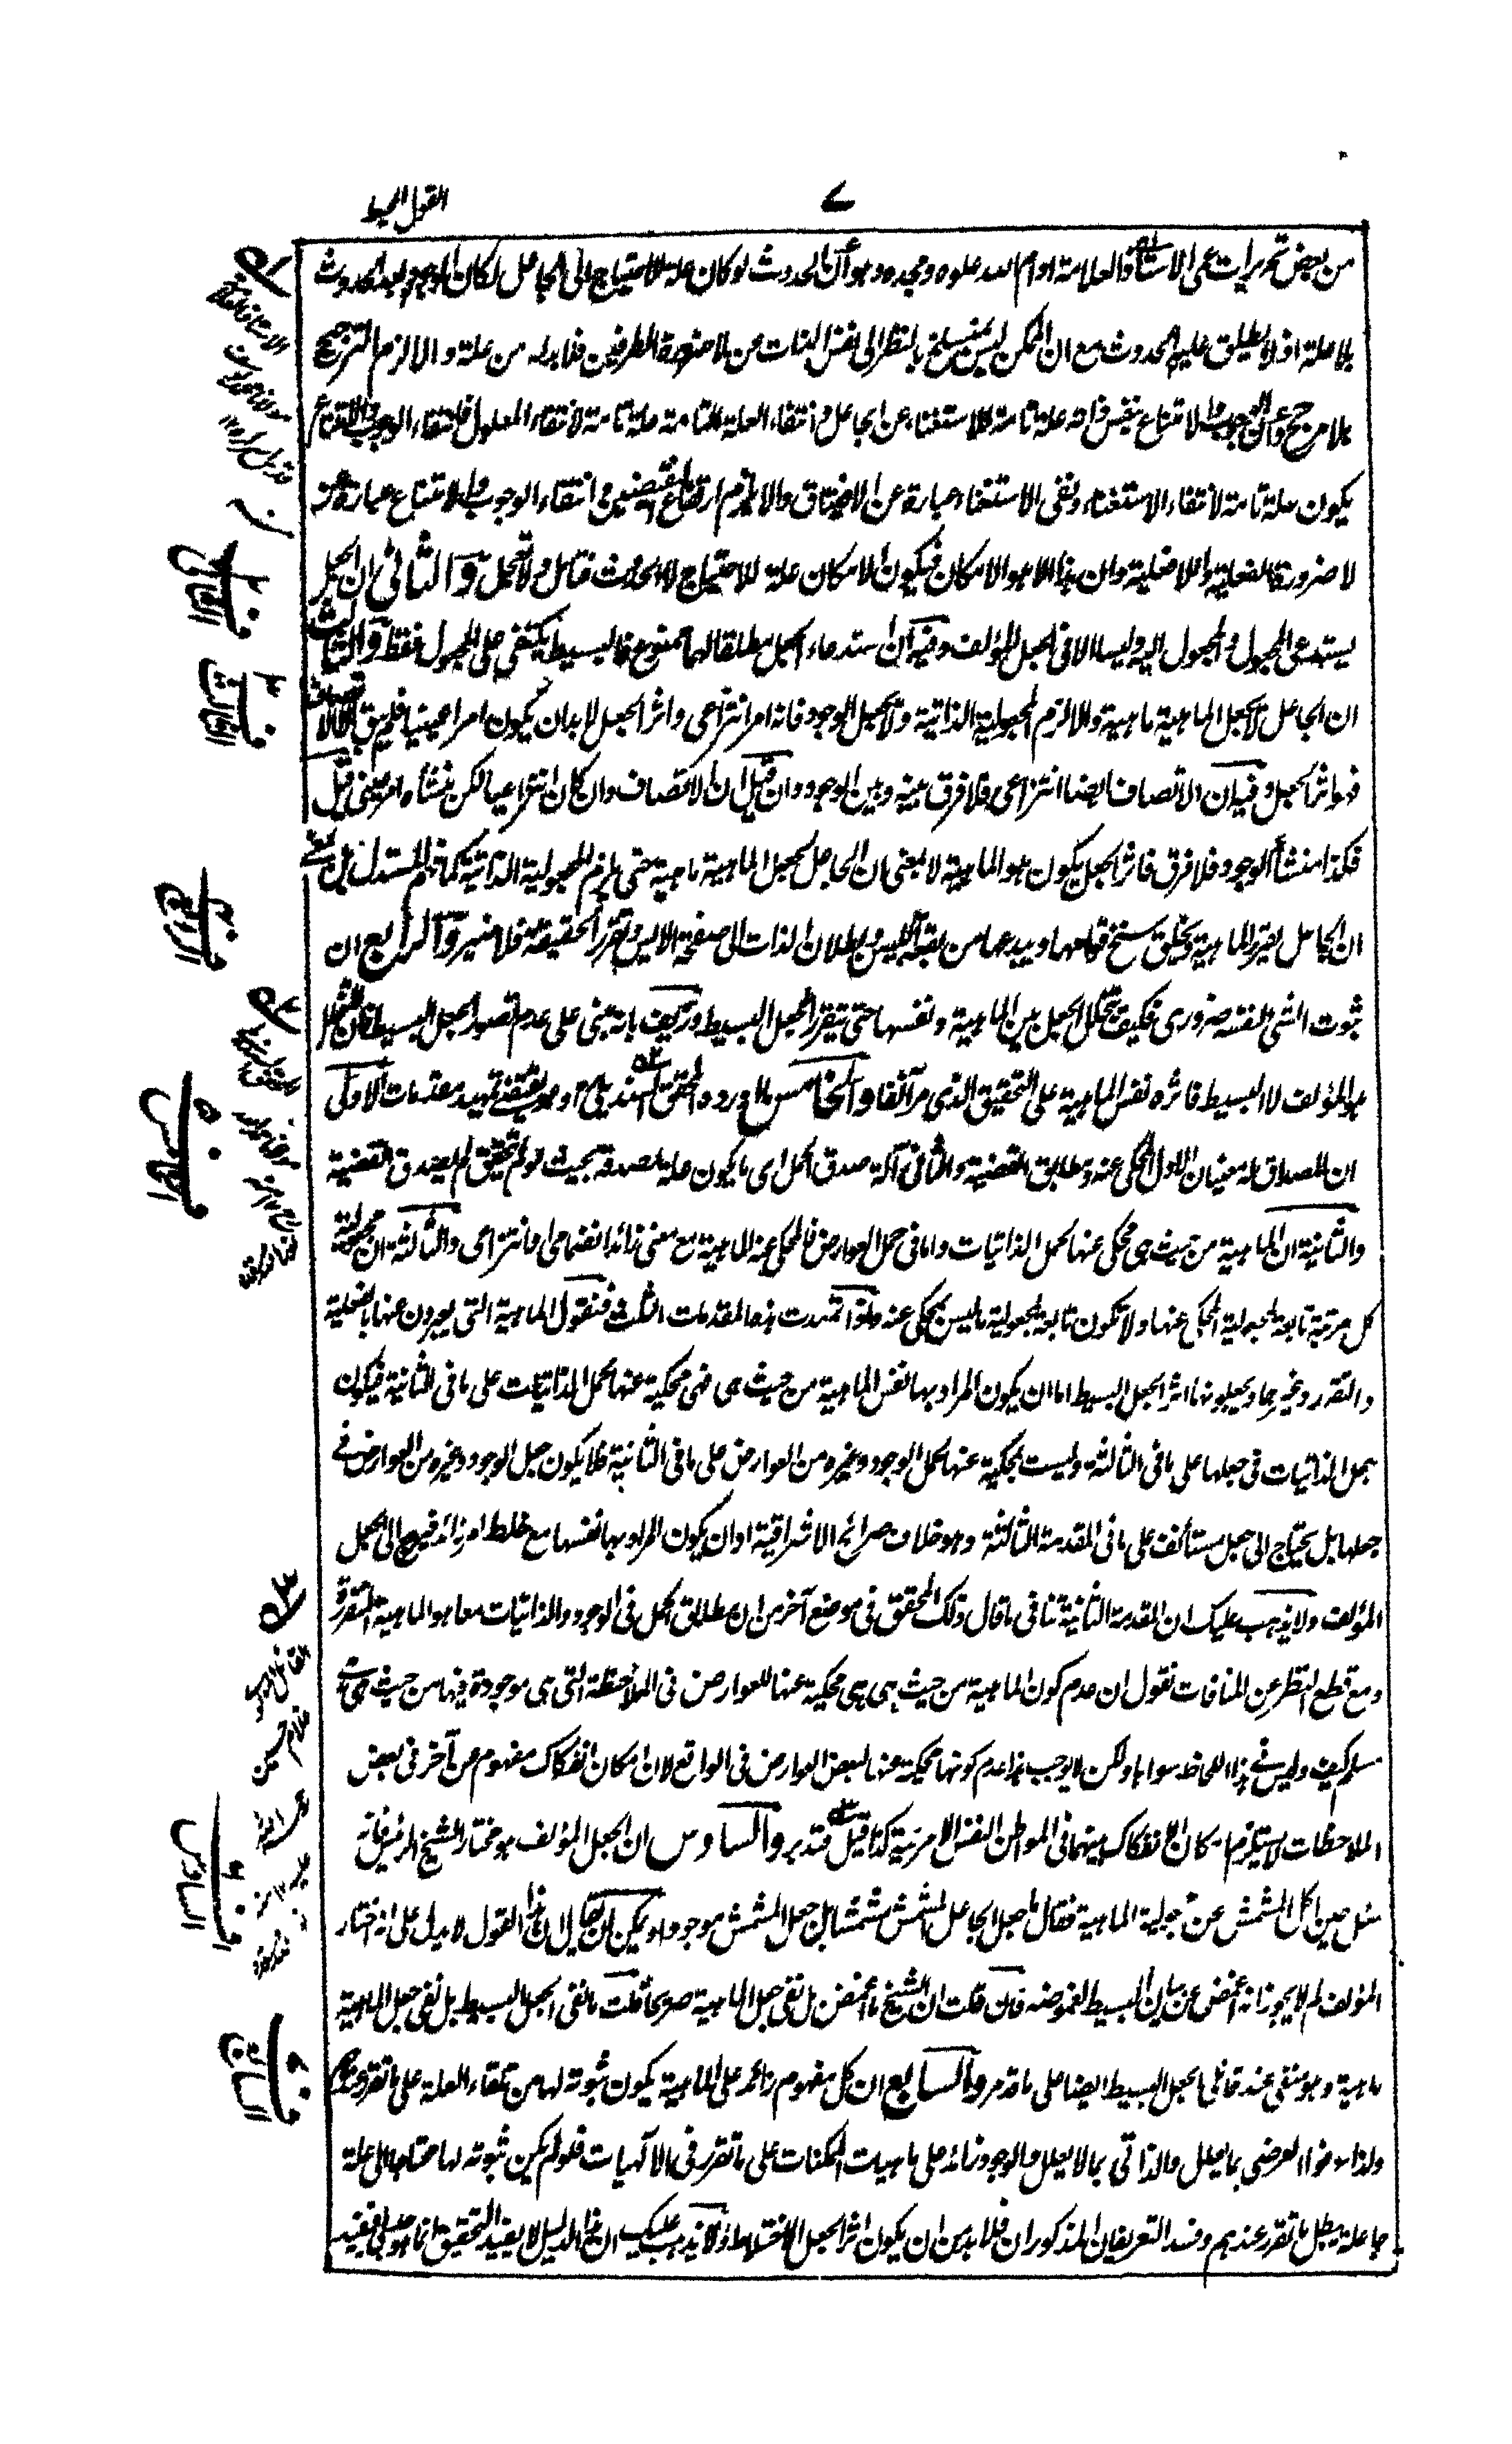 القول المحيط
٧
من بعض تحريرات عمي الاستاذ العلامة ادام الله علوه ومجده وهو أن الحدوث لو كان علة للاحتياج الى الجاعل لكان الوجود بعد الحدوث
بلا علة اذ لا يطلق عليه الحدوث مع ان الممكن ليس بمنسلخ بالنظر الى نفس الذات عن لا ضرورة الطرفين فلا بد له من علة والا لزم الترجيح
بلا مرجح وعلى الوجوب والامتناع بنفس ذاته علة تامة للاستغناء عن الجاعل وانتفاء العلة التامة علة تامة لانتفاء المعلول فانتفاء الوجوب والامتناع
يكون علة تامة لانتفاء الاستغناء ونفى الاستغناء عبارة عن الافتياق والا يلزم ارتفاع النقيضين وانتفاء الوجوب والامتناع عبارة عن
لا ضرورة الفعلية واللافعلية وان هذا الا هو الامكان فيكون الامكان علة للاحتياج لا الحدوث فتأمل ولا تعجل والثاني ان الجعل
يستدعى المجعول والمجعول اليه وليسا الا فى الجعل المؤلف وفيه ان استدعاء الجعل مطلقا لهما ممنوع فالبسيط يكتفى على المجعول فقط والثالث
ان الجاعل لا يجعل الماهية ماهية والا لزم المجعولية الذاتية ولا يجعل الوجود فانه امر انتزاعى واثر الجعل لا بد ان يكون امرا عينيا فلم يبق الا الاتصاف
فهو اثر الجعل وفيه ان الاتصاف ايضا انتزاعى فلا فرق بينه وبين الوجود وان قيل ان الاتصاف وان كان انتزاعيا لكن منشأه امر عينى قيل
فكذا منشأ الوجود فلا فرق فاثر الجعل يكون هو الماهية لا بمعنى ان الجاعل يجعل الماهية ماهية حتى يلزم المجعولية الذاتية كما فهم المستدل بل بمعنى
ان الجاعل يقرر الماهية ويخلق سنخ قوامها ويبدعها من بقعة الليس وبطلان الذات الى صفحة الايس وتقرر الحقيقة فلا ضير والرابع ان
ثبوت الشئ لنفسه ضرورى فكيف يتخلل الجعل بين الماهية ونفسها حتى يتقرر الجعل البسيط وزيف بانه مبنى على عدم تصور الجعل البسيط فان المتخلل
هو المؤلف لا البسيط فاثره نفس الماهية على التحقيق الذى مر آنفا والخامس ما اورده المحقق السنديلى وهو يقتضى تمهيد مقدمات الاولى
ان المصداق له معنيان الاول المحكى عنه ومطابق القضية والثانى آلة صدق الحمل اى ما يكون علة لصدقه بحيث لو لم يتحقق لم يصدق القضية
والثانية ان الماهية من حيث هى محكى عنها لحمل الذاتيات واما فى حمل العوارض فالمحكى عنه الماهية مع معنى زائد انضمامى او انتزاعى والثالثة ان مجعولية
كل مرتبة تابعة لمجعولية المحكى عنها ولا تكون تابعة لمجعولية ما ليس بمحكى عنه واذا تمهدت هذه المقدمات الثلث فنقول الماهية التى يعبرون عنها بالفعلية
والتقرر وغيرها ويجعلونها اثر الجعل البسيط اما ان يكون المراد بها نفس الماهية من حيث هى فهى محكية عنها لحمل الذاتيات على ما فى الثانية فيكون
جعل الذاتيات فى جعلها على ما فى الثالثة وليست بمحكية عنها لحمل الوجود وغيره من العوارض على ما فى الثانية فلا يكون جعل الوجود وغيره من العوارض فى
جعلها بل يحتاج الى جعل مستأنف على ما فى المقدمة الثالثة وهو خلاف صرائح الاشراقية او ان يكون المراد بها نفسها مع خلط امر زائد فيرجع الى الجعل
المؤلف ولا يذهب عليك ان المقدمة الثانية تنافى ما قال ذلك المحقق فى موضع آخر من ان مطابق الحمل فى الوجود والذاتيات معا هو الماهية المتقررة
ومع قطع النظر عن المنافات نقول ان عدم كون الماهية من حيث هى هى محكية عنها للعوارض فى الملاحظة التى هى موجودة فيها من حيث هى هى
مسلم كيف وليس فى هذا اللحاظ سواها ولكن لا يوجب هذا عدم كونها محكية عنها لبعض العوارض فى الواقع لان امكان انفكاك مفهوم عن آخر فى بعض
الملاحظات لا يستلزم امكان الانفكاك بينهما فى المواطن النفس الامرية كذا قيل فتدبر والسادس ان الجعل المؤلف هو مختار الشيخ الرئيس فانه
سئل حين اكل المشمش عن مجعولية الماهية فقال ما جعل الجاعل المشمش مشمشا بل جعل المشمش موجودا ويمكن ان يقال ان هذا القول لا يدل على انه اختار
المؤلف لم لا يجوز انه اغمض عن بيان البسيط لغموضه فان قلت ان الشيخ ما اغمض بل نفى جعل الماهية صريحا قلت ما نفى الجعل البسيط بل نفى جعل الماهية
ماهية وهو منفى عند قائلى الجعل البسيط ايضا على ما قد مر والسابع ان كل مفهوم زائد على الماهية يكون ثبوته لها من تلقاء العلة على ما تقرر عندهم
ولذا عرفوا العرضى بما يعلل والذاتى بما لا يعلل والوجود زائد على ماهيات الممكنات على ما تقرر فى الالهيات فلو لم يكن ثبوته لها محتاجا الى علة
جاعلة بطل ما تقرر عندهم وفسد التعريفان المذكوران فلا بد من ان يكون اثر الجعل الاختلاط ولا يذهب عليك ان هذا الدليل لا يفيد التحقيق انما هو جدلى فيفيد
الثانى
الثالث
الرابع
الخامس
السادس
السابع